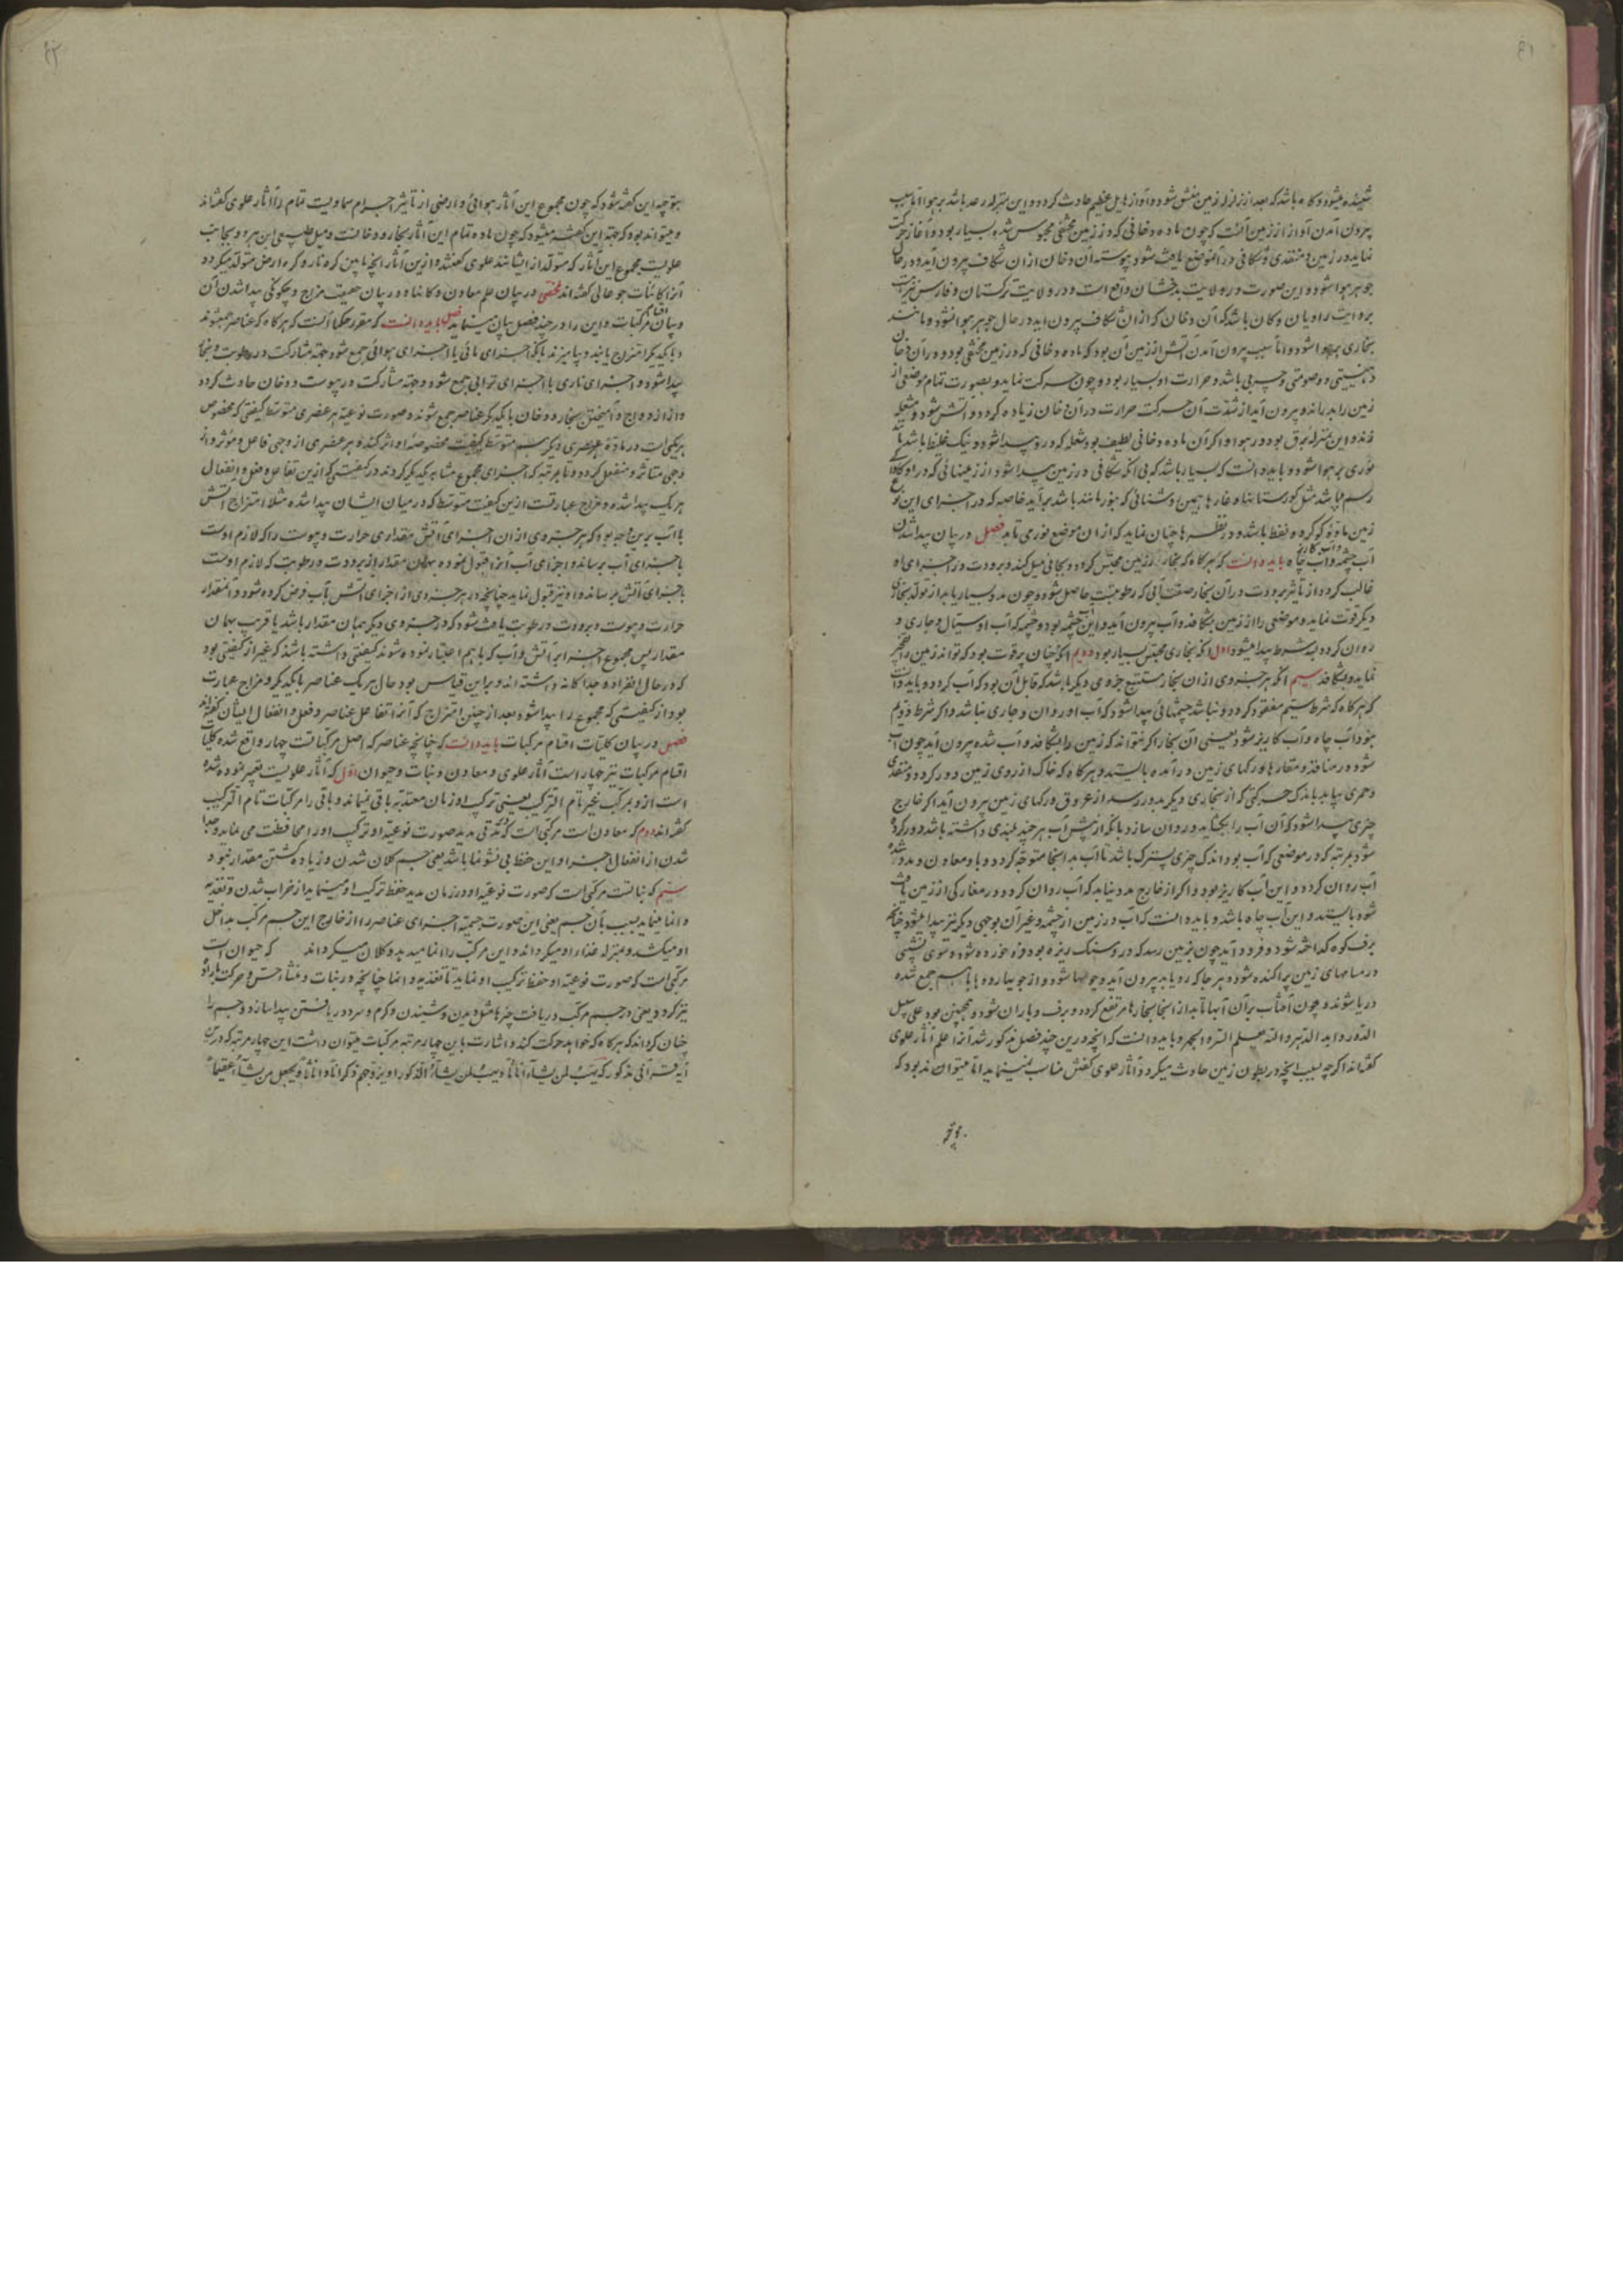 شنیده میشود و گاه باشد که بعد از زلزله زمین منشق شود و آواز هایل عظیم حادث گردد و این بمنزله رعد باشد بر هوا اما سبب
بیرون آمدن آواز از زمین آنست که چون ماده دخانی که در زمین محتقن محبوس شده بسیار بود و آغاز حرکت
نماید در زمین منفذی و شکافی در آن موضع باعث شود پیوسته آن دخان از آن شکاف بیرون آید و در حال
جوهر هوا شود و این صورت در ولایت بدخشان واقع است و در ولایت ترکستان و فارس نیز است
بروایت راویان و کان باشد که آن دخان که از آن شکاف بیرون آید در حال جوهر هوا نشود و مانند
بخاری بر هوا شود و اما سبب بیرون آمدن آتش از زمین آن بود که ماده دخانی که در زمین محتقن بود و در آن دخان
دهنیتی و دسومتی و چربی باشد و حرارت او بسیار بود و چون حرکت نماید و بصورت تمام موضعی از
زمین را بدراند و بیرون آید از شدت آن حرکت حرارت در آن دخان زیاده گردد و آتش شود و مشتعل
و این بمنزله برق بود در هوا و اگر آن ماده دخانی لطیف بود شعله که در او پیدا شود و نیک غلیظ باشد
نوری بر هوا شود و بباید دانست که بسیار باشد که بی آنکه شکافی در زمین پیدا شود از زمینهائی که در او
زمین ماده گوگرد و نفط باشد و در نظرها چنان نماید که از آن موضع نوری تابد فصل در بیان پیدا شدن
آب چشمه و آب کاریز و آب چاه بباید دانست که هرگاه که بخار در زمین محتبس گردد و بجانبی میل کند و برودت در اجزای او
غالب گردد از تاثیر برودت در آن بخار صفت آبی که رطوبتست حاصل شود و چون مدد بسیار یابد از تولد بخار
دیگر قوت نماید و موضعی را از زمین بشکافد و آب بیرون آید و این چشمه بود و چشمه که آب او سیال و جاری و
روان گردد بسه شرط پیدا میشود اول آنکه بخاری محتبس بسیار بود دویم آنکه چنان پر قوت بود که تواند زمین را
نماید و بشکافد سیم آنکه هر جزوی از آن بخار مستتبع جزوی دیگر باشد که قابل آن بود که آب گردد و بباید دانست
که هرگاه که شرط سیم مفقود گردد و نباشد چشمهائی پیدا شود که آب او روان و جاری نباشد و اگر شرط دویم
نبود آب چاه و آب کاریز شود یعنی آن بخار اگر نتواند که زمین را بشکافد و آب شده بیرون آید چون آب
شود در منافذ و مغارها و رگهای زمین در آمده بایستد و هرگاه که خاک از روی زمین دور گردد و منفذی
و ممری بیابد باندک حرکتی که از بخاری دیگر بدو رسد از عروق و رگهای زمین بیرون آید اگر خارج
چیزی پیدا شود که آن آب را بگشاید و روان سازد بآنکه از پیش آب هر چند بلندی داشته باشد دور کرده
شود بمرتبه که در موضعی که آب بود اندک چیزی پسترک باشد تا آب بدانجا متوجه گردد و باو معاون و مدد شده
آب روان گردد و این آب کاریز بود و اگر از خارج مدد نیابد که آب روان گردد در مغارکی از زمین یافت
شود بایستد و این آب چاه باشد و بباید دانست که آب در زمین از چشمه و غیر آن بوجهی دیگر نیز پیدا میشود چنانچه
برف کوه گداخته شود و فرود آید چون بزمین رسد که در او سنگ ریزه بود فرو خورده شود و سوی نشیبی
در مسامهای زمین پراکنده شود و هر جا که رو یابد بیرون آید و جویها شود و از جویها رودها با هم جمع شده
دریا شوند و چون آفتاب بر آن آبها تابد از آنجا بخارها مرتفع گردد و برف و باران شود و همچنین بود علی سبیل
الدور و ابد الدهر و الله یعلم السر و الجهر و بباید دانست که آنچه درین چند فصل مذکور شد آنرا علم آثار علوی
گفته‌اند اگرچه بسبب آنچه در بطون زمین حادث میگردد آثار علوی گفتن مناسب نمینماید اما میتواند بود که
بتوجیه این گفته شود که چون مجموع این آثار هوائی و ارضی از تاثیر اجرام سماویست تمام را آثار علوی گفته‌اند
و میتواند بود که جهة این گفته میشود که چون ماده تمام این آثار بخار و دخانست و میل طبیعی این هر دو بجانب
علویست مجموع این آثار که متولد از ایشانند علوی گفتند و ازین آثار آنچه مابین کره نار و کره ارض متولد میگردد
آنرا کائنات جو عالی گفته‌اند مختصی در بیان علم معادن و کانها و در بیان حقیقت مزاج و چگونگی پیدا شدن آن
و بیان اقسام مرکبات و این را در چند فصل بیان مینماید فصل بباید دانست که مقرر حکما آنست که هرگاه که عناصر جمع شوند
و با یکدیگر امتزاج یابند و بیامیزند بآنکه اجزای مائی با اجزای هوائی جمع شود جهة مشارکت در رطوبت و بخار
پیدا شود و اجزای ناری با اجزای ترابی جمع شود و جهة مشارکت در یبوست و دخان حادث گردد
و از ازدواج و آمیختن بخار و دخان با یکدیگر عناصر جمع شوند و صورت نوعیه هر عنصری متوسط کیفیتی که مخصوص
بهریکی است در ماده عنصری دیگر بسبب متوسط کیفیت مخصوصه او اثر کند و هر عنصری از وجهی فاعل و مؤثر و از
وجهی متاثر و منفعل گردد و تا بمرتبه که اجزای مجموع مشابه یکدیگر گردند در کیفیتی که ازین تفاعل و فعل و انفعال
هر یک پیدا شده و مزاج عبارتست ازین کیفیت متوسط که در میان ایشان پیدا شده مثلا امتزاج آتش
با آب برین وجه بود که هر جزوی از آن اجزای آتش مقداری حرارت و یبوست را که لازم اوست
باجزای آب برساند و اجزای آب آنرا قبول نموده بهمان مقدار از برودت و رطوبت که لازم اوست
باجزای آتش برساند و او نیز قبول نماید چنانچه در هر جزوی از اجزای آتش و آب فرض کرده شود و آنمقدار
حرارت و یبوست و برودت و رطوبت یافت شود که در جزوی دیگر همان مقدار باشد یا قریب بهمان
مقدار پس مجموع اجزای آتش و آب که با هم اعتبار نموده شوند کیفیتی داشته باشند که غیر از کیفیتی بود
که در حال انفراد و جدا گانه داشته‌اند و برین قیاس بود حال هر یک عناصر با یکدیگر و مزاج عبارت
بود از کیفیتی که مجموع را پیدا شود بعد از چنین امتزاج که آنرا تفاعل عناصر و فعل و انفعال ایشان گفته‌اند
فصل در بیان کلیات اقسام مرکبات بباید دانست که چنانچه عناصر که اصل مرکباتست چهار واقع شده کلیات
اقسام مرکبات نیز چهار است آثار علوی و معادن و نبات و حیوان اول که آثار علویست تعبیر نموده شده
است ازو بمرکب غیر تام الترکیب یعنی ترکیب او زمان معتد به باقی نمیماند و باقی را مرکبات تام الترکیب
گفته‌اند دوم که معادن است مرکبی است که مدتی مدید صورت نوعیه او ترکیب او را محافظت می نماید و جدا
شدن از انفعال اجزا و این حفظ بی نشو نما باشد یعنی جسم کلان شدن و زیاده گشتن مقدار نبود و
سیم که نباتست مرکبی است که صورت نوعیه او در زمان مدید حفظ ترکیب او مینماید از خراب شدن و تغذیه
و انما مینماید بسبب بآن جسم یعنی این صورت جمیه اجزای عناصر را از خارج این جسم مرکب بداخل
او میکشد و بمنزله غذا او میگرداند و این مرکب را انما میدهد و کلان میگرداند که حیوان است
مرکبی است که صورت نوعیه او حفظ ترکیب او نماید تا تغذیه و انما چنانچه در نبات و منشا حس و حرکت باراده
نیز گردد یعنی در جسم مرکب دریافت چیزها مثل دیدن و شنیدن و گرم و سرد دریافتن پیدا سازد و جسم را
چنان گرداند که هرگاه که خواهد حرکت کند و اشارت باین چهار مرتبه مرکبات میتوان داشت این چهار مرتبه که درین
آیه قرآنی مذکور که یهب لمن یشاء اناثا و یهب لمن یشاء الذکور او یزوجهم ذکرانا و اناثا و یجعل من یشاء عقیما